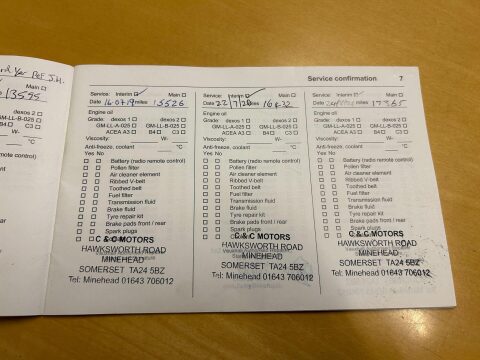 Service confirmation 7
Main
13595
Service: Interim Main
Date 16-07-19 miles 15526
Engine oil
Grade: dexos 1 dexos 2
GM-LL-A-025 GM-LL-B-025
ACEA A3 B4 C3
Viscosity: W-
Anti-freeze, coolant °C
Yes No
Battery (radio remote control)
Pollen filter
Air cleaner element
Ribbed V-belt
Toothed belt
Fuel filter
Transmission fluid
Brake fluid
Tyre repair kit
Brake pads front / rear
Spark plugs
C & C MOTORS
HAWKSWORTH ROAD
MINEHEAD
SOMERSET TA24 5BZ
Tel: Minehead 01643 706012
Service: Interim Main
Date 22/7/20 miles
Engine oil
Grade: dexos 1 dexos 2
GM-LL-A-025 GM-LL-B-025
ACEA A3 B4 C3
Viscosity: W-
Anti-freeze, coolant °C
Yes No
Battery (radio remote control)
Pollen filter
Air cleaner element
Ribbed V-belt
Toothed belt
Fuel filter
Transmission fluid
Brake fluid
Tyre repair kit
Brake pads front / rear
Spark plugs
C & C MOTORS
HAWKSWORTH ROAD
MINEHEAD
SOMERSET TA24 5BZ
Tel: Minehead 01643 706012
Service: Interim Main
Date miles 17365
Engine oil
Grade: dexos 1 dexos 2
GM-LL-A-025 GM-LL-B-025
ACEA A3 B4 C3
Viscosity: W-
Anti-freeze, coolant °C
Yes No
Battery (radio remote control)
Pollen filter
Air cleaner element
Ribbed V-belt
Toothed belt
Fuel filter
Transmission fluid
Brake fluid
Tyre repair kit
Brake pads front / rear
Spark plugs
C & C MOTORS
HAWKSWORTH ROAD
MINEHEAD
SOMERSET TA24 5BZ
Tel: Minehead 01643 706012